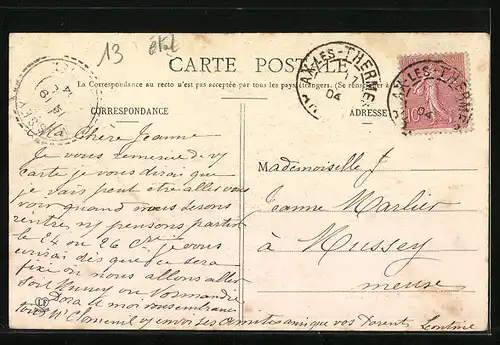 13 état
CARTE POSTALE
La Correspondance au recto n'est pas acceptée par tous les pays étrangers. (Se renseigner à
CORRESPONDANCE
ADRESSE
AX-LES-THERMES
04
AX-LES-THERMES
04
10
Ma Chère Jeanne
Je vous remercie de
carte je vous dirai que
je vais peut être aller vous
voir quand nous serons
rentrer, pensons partir
le 24 ou 26 Ct je vous
dès que ce sera
fixé ou nous allons aller
soit Mussey ou Normandie
Dora et moi vous embrasse
vos Parents Leontine
Mademoiselle J
Jeanne Marlier
à Mussey
meuse